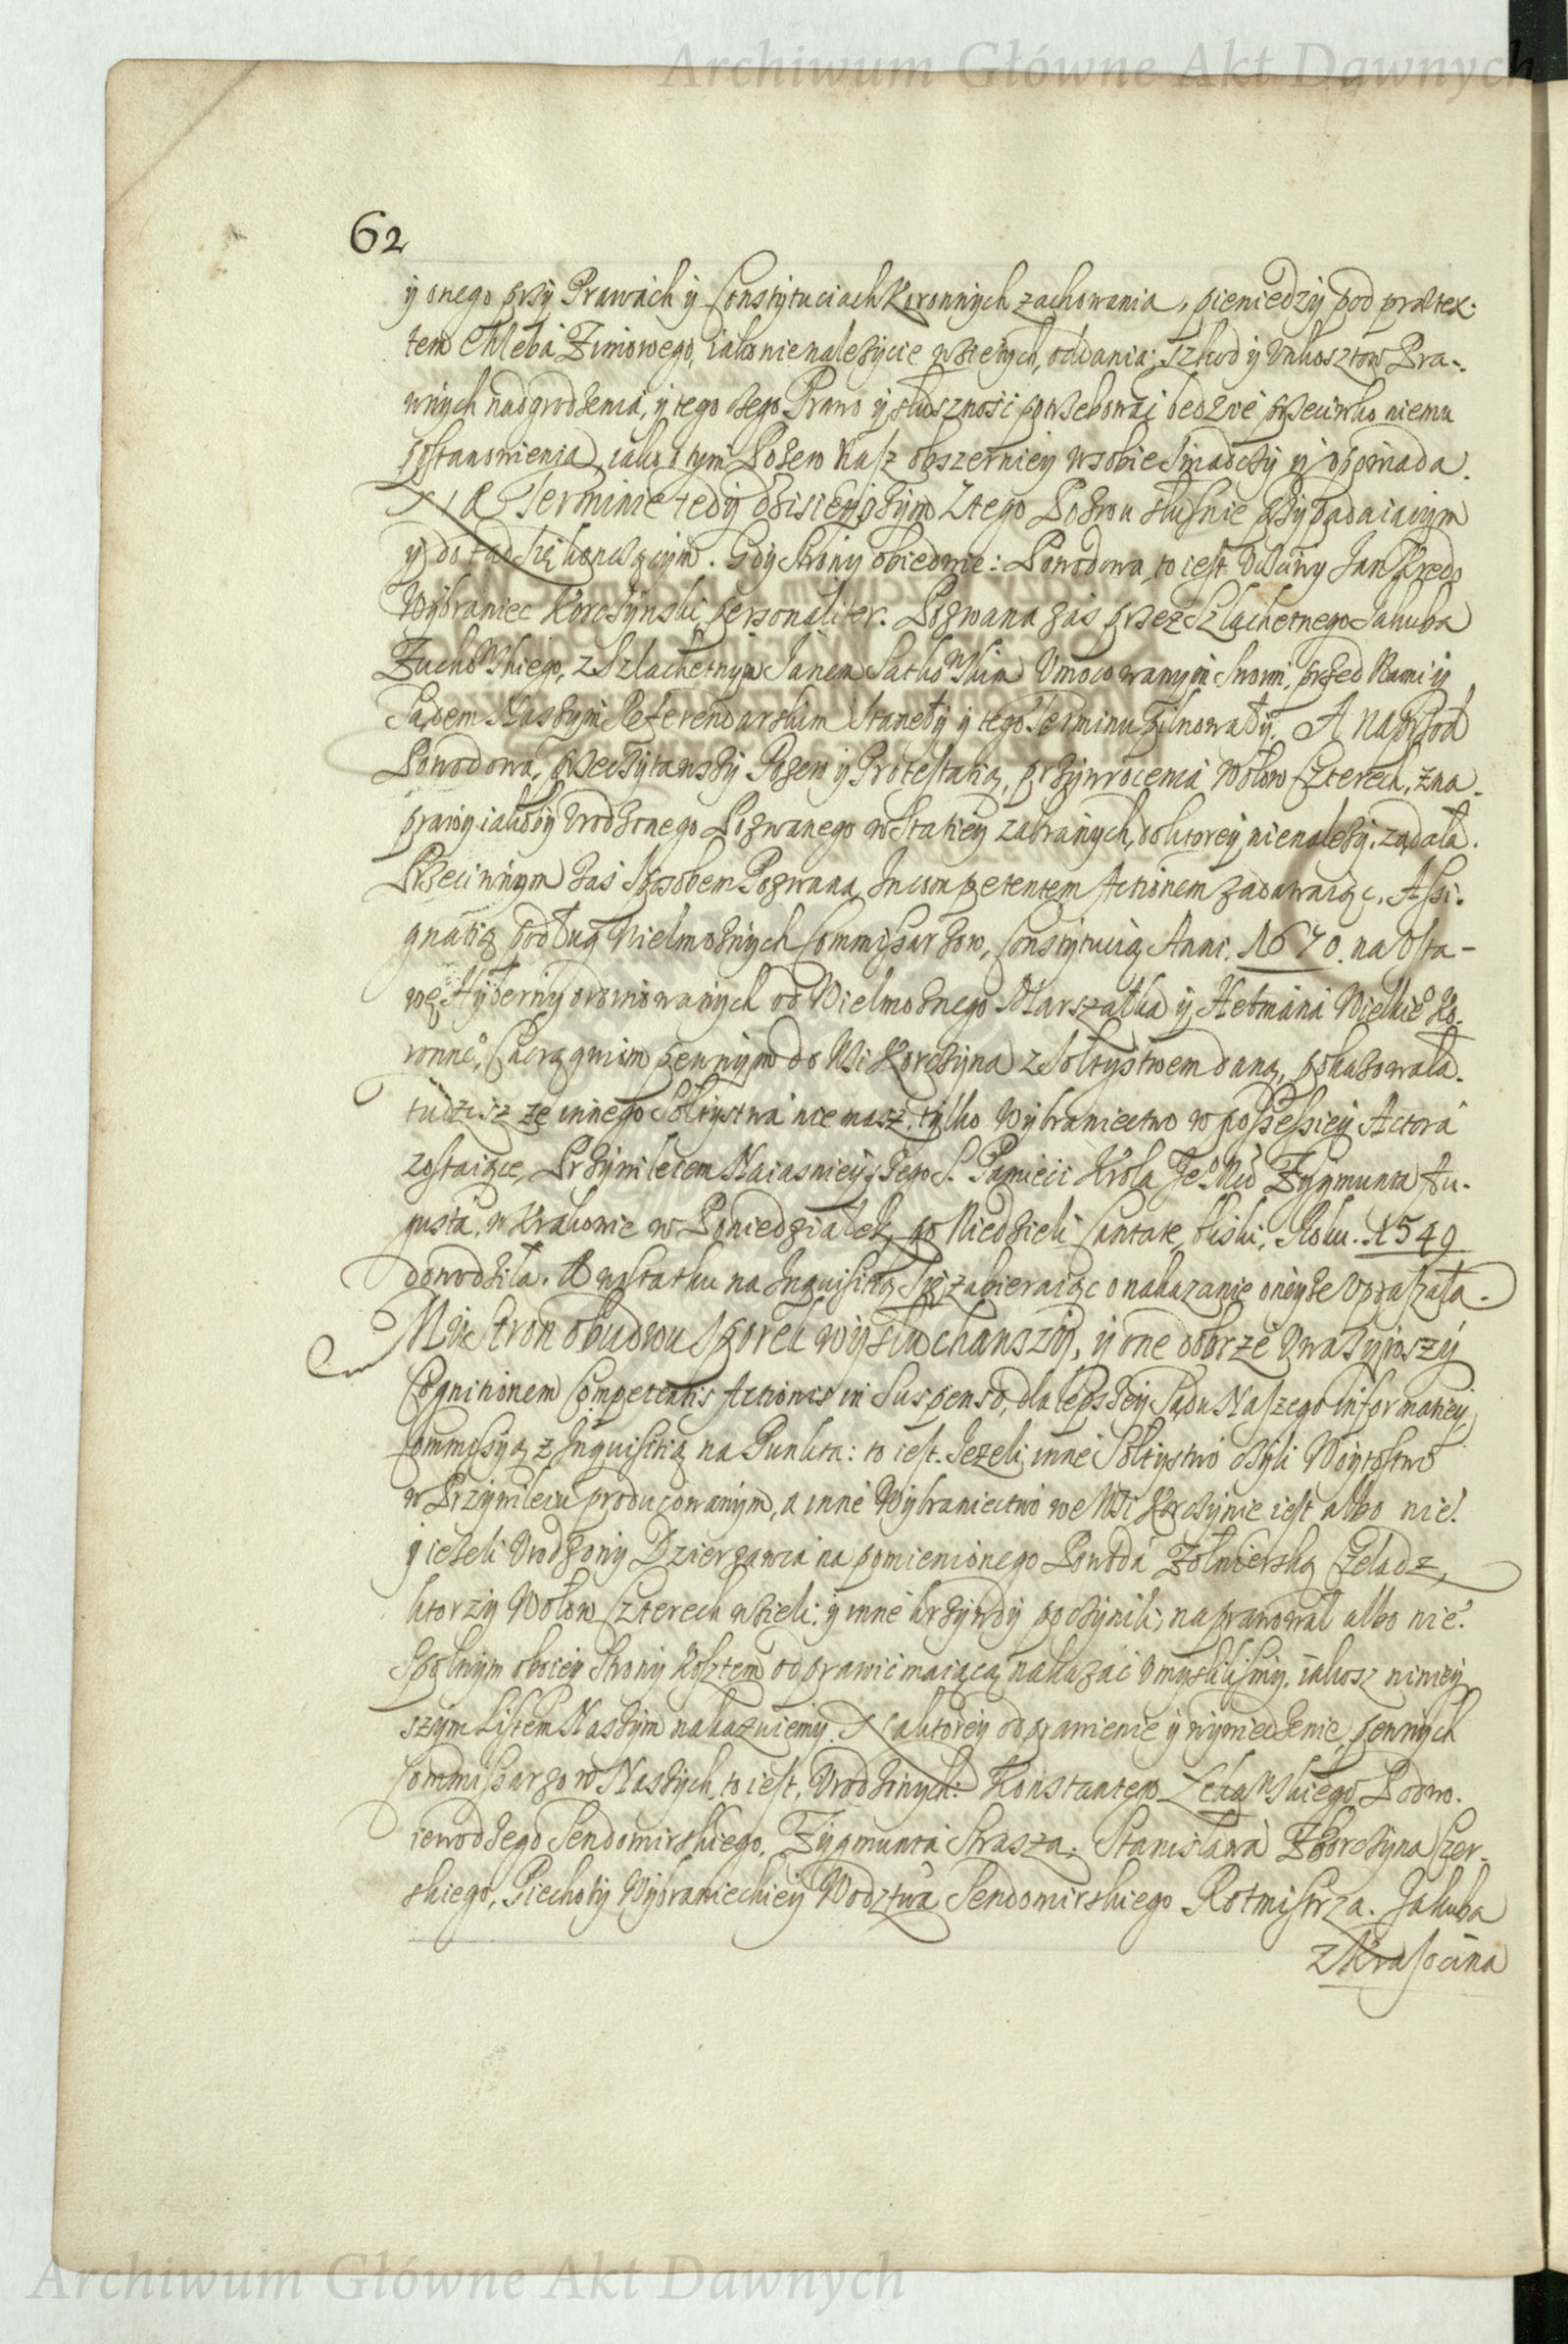 Archiwum Główne Akt Dawnych
62
y onego przy Prawach y Constytuciach Koronnych zachowania, pieniedzy pod prætex-
tem Chleba Zimowego, iako nienalezycie wzietych, oddania; szkod y Unkosztow Pra-
wnych nadgrodzenia, y tego czego Prawo y słuszność potrzebować bedzie przeciwko niemu
postanowienia, iako o tym Pozew Nasz obszerniey w sobie swiadczy y opowiada.
Na Terminie tedy dzisieyszym Ztego Pozwu słusznie przypadaiącym
y do tąd się kończącym. Gdy Strony obiedwie: Powodowa, to iest Uczciwy Jan Kredo
Wybraniec Korczynski, personaliter. Pozwana zas przez Szlachetnego Jakuba
Zuchowskiego, z Szlachetnym Janem Satkowskim Umocowanym Swoim, przed Nami y
Sądem Naszym Referendarskim Stanęły y tego Terminu pilnowały. A naprzod
Powodowa, przeczytawszy Pozew y Protestatią, przywrocenia Wołow Czterech, zna-
prawy iakoby Urodzonego Pozwanego w Stacyey zabranych, do ktorey nienalezy, ządała.
Przeciwnym zas sposobem Pozwana Incompetentem Actionem zadawaiąc, Assi-
gnatią podług Wielmoznych Commissarzow, Constytucią Anni. 1670. na Usta-
wę Hyberny uformowanych od Wielmoznego Marszałka y Hetmana Wielkie° Ko-
ronne°, Chorągwiom pewnym do Wsi Korczyna z Sołtystwem daną, pokazowała.
tudziesz ze innego Sołtystwa nie masz, tylko Wybraniectwo w possessiey Actora
zostaiące, Przywileiem Naiasnieyszego S. Pamieci Krola Je° Mci Zygmunta Au-
gusta, w Krakowie w Poniedziałek po Niedzieli Cantate bliski, Roku. 1549
dowodziła. A w ostatku na Inquisitią się zabieraiąc o nakazanie oneyze Upraszała.
My Stron obudwu sporek wysłuchawszy, y one dobrze Uwazywszy
Cognitionem Competentis Actionis in Suspenso, dla lepszey Sądu Naszego informatiey,
Commissyą z Inquisitią na Punkta: to iest. Jezeli inne Sołtystwo czyli Woytostwo
w Przywileiu producowanym, a inne Wybraniectwo we Wsi Korczynie iest albo nie?
y iezeli Urodzony Dzierzawca na pomienionego Powoda Zołnierską Czeladz,
ktorzy Wołow Czterech wzieli, y inne krzywdy poczynili, naprawował albo nie?
Spolnym oboiey Strony kosztem odprawić maiącą nakazać Umyslilismy, iakosz niniey-
szym Listem Naszym nakazuiemy. Na ktorey odprawienie y wywiedzenie, pewnych
Commissarzow Naszych, to iest, Urodzonych: Konstantego Zelawskiego Podwo-
iewodzego Sendomirskiego, Zygmunta Strasza, Stanisława Zborczyna Czer-
skiego, Piechoty Wybranieckiey Wodztwa Sendomirskiego Rotmistrza. Jakuba
z Krasocina
Archiwum Główne Akt Dawnych